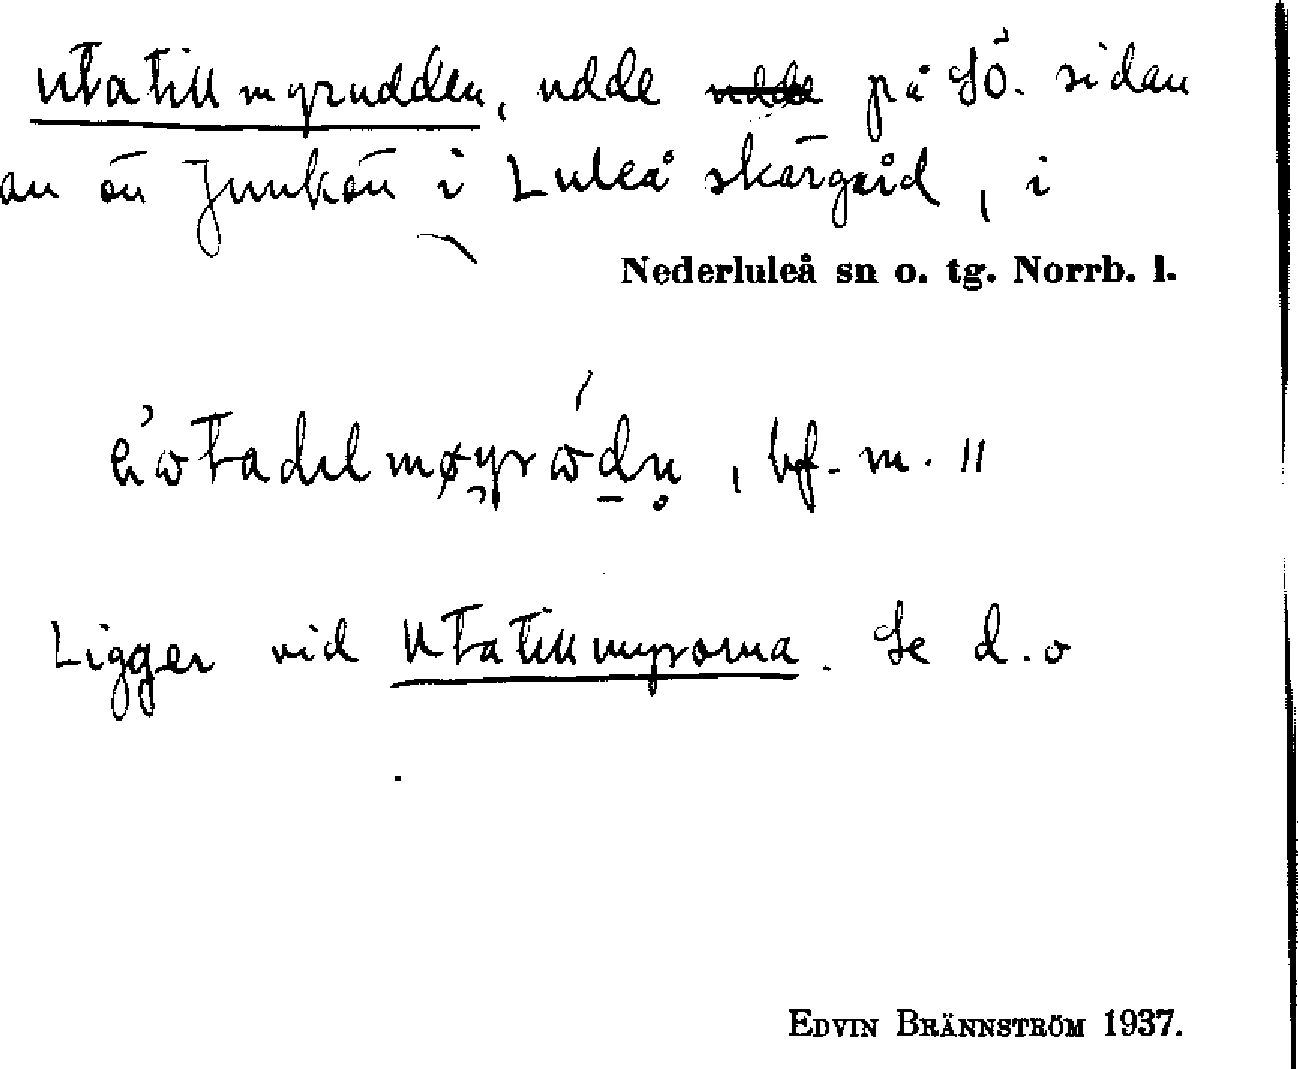 Utatillmyrudden, udde udde på SÖ. sidan
av ön Junkön i Luleå skärgård, i
Nederluleå sn o. tg. Norrb. l.
bf. m. 11
Ligger vid Utatillmyrorna. Se d.o
EDVIN BRÄNNSTRÖM 1937.